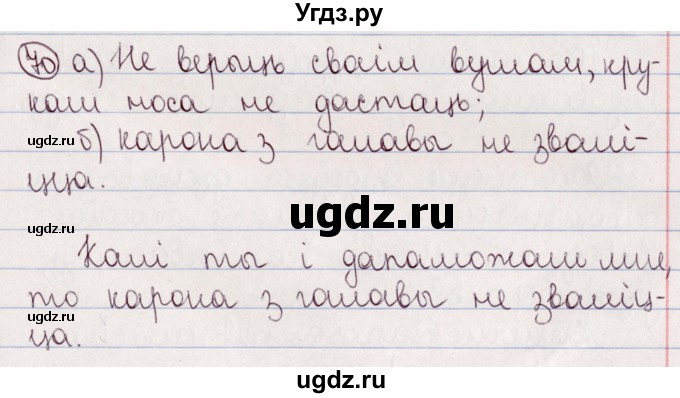 Угдз.ру
70 а) Не верыць сваім вушам, кру-
ком носа не дастаць;
ugdz.ru
б) карона з галавы не звалі-
ugdz.ru
цца.
ugdz.ru
ugdz.ru
Калі ты і дапаможаш мне,
то карона з галавы не зваліц-
ugdz.ru
ца.
ugdz.ru
ugdz.ru